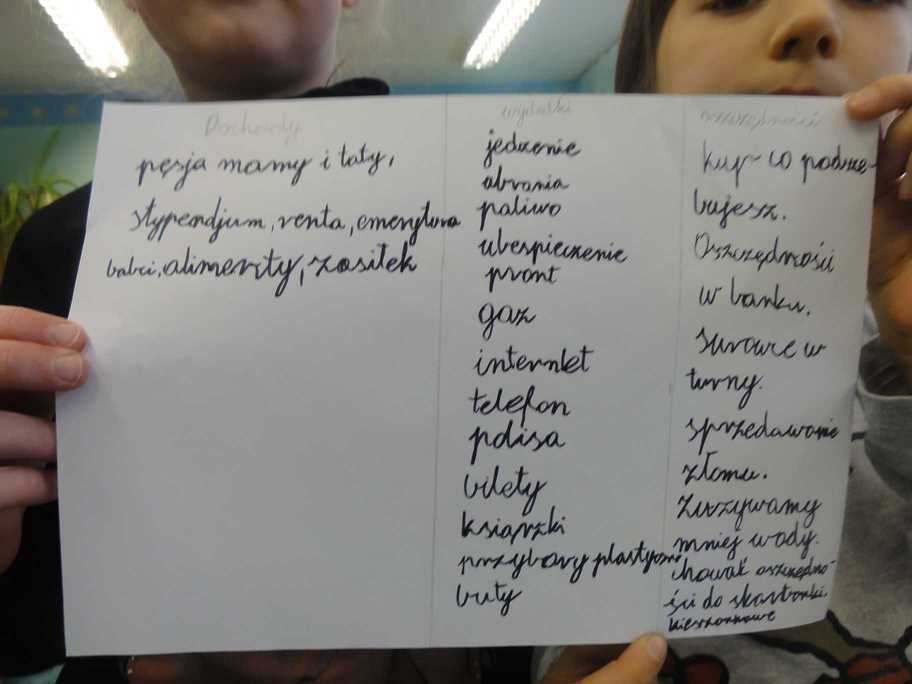 Dochody
pęsja mamy i taty,
stypendjum, renta, emerytura
babci, alimenty, zasiłek
wydatki
jedzenie
ubrania
paliwo
ubespieczenie
pront
gaz
internet
telefon
polisa
bilety
książrki
przybory plastyczne
buty
oszczędności
kup- co podrze-
bujesz.
Oszczędności
w banku.
surowce w
turny.
sprzedawanie
złomu.
Zurzywamy
mniej wody.
chować oszczędno-
ści do skarbonki.
kieszonkowe